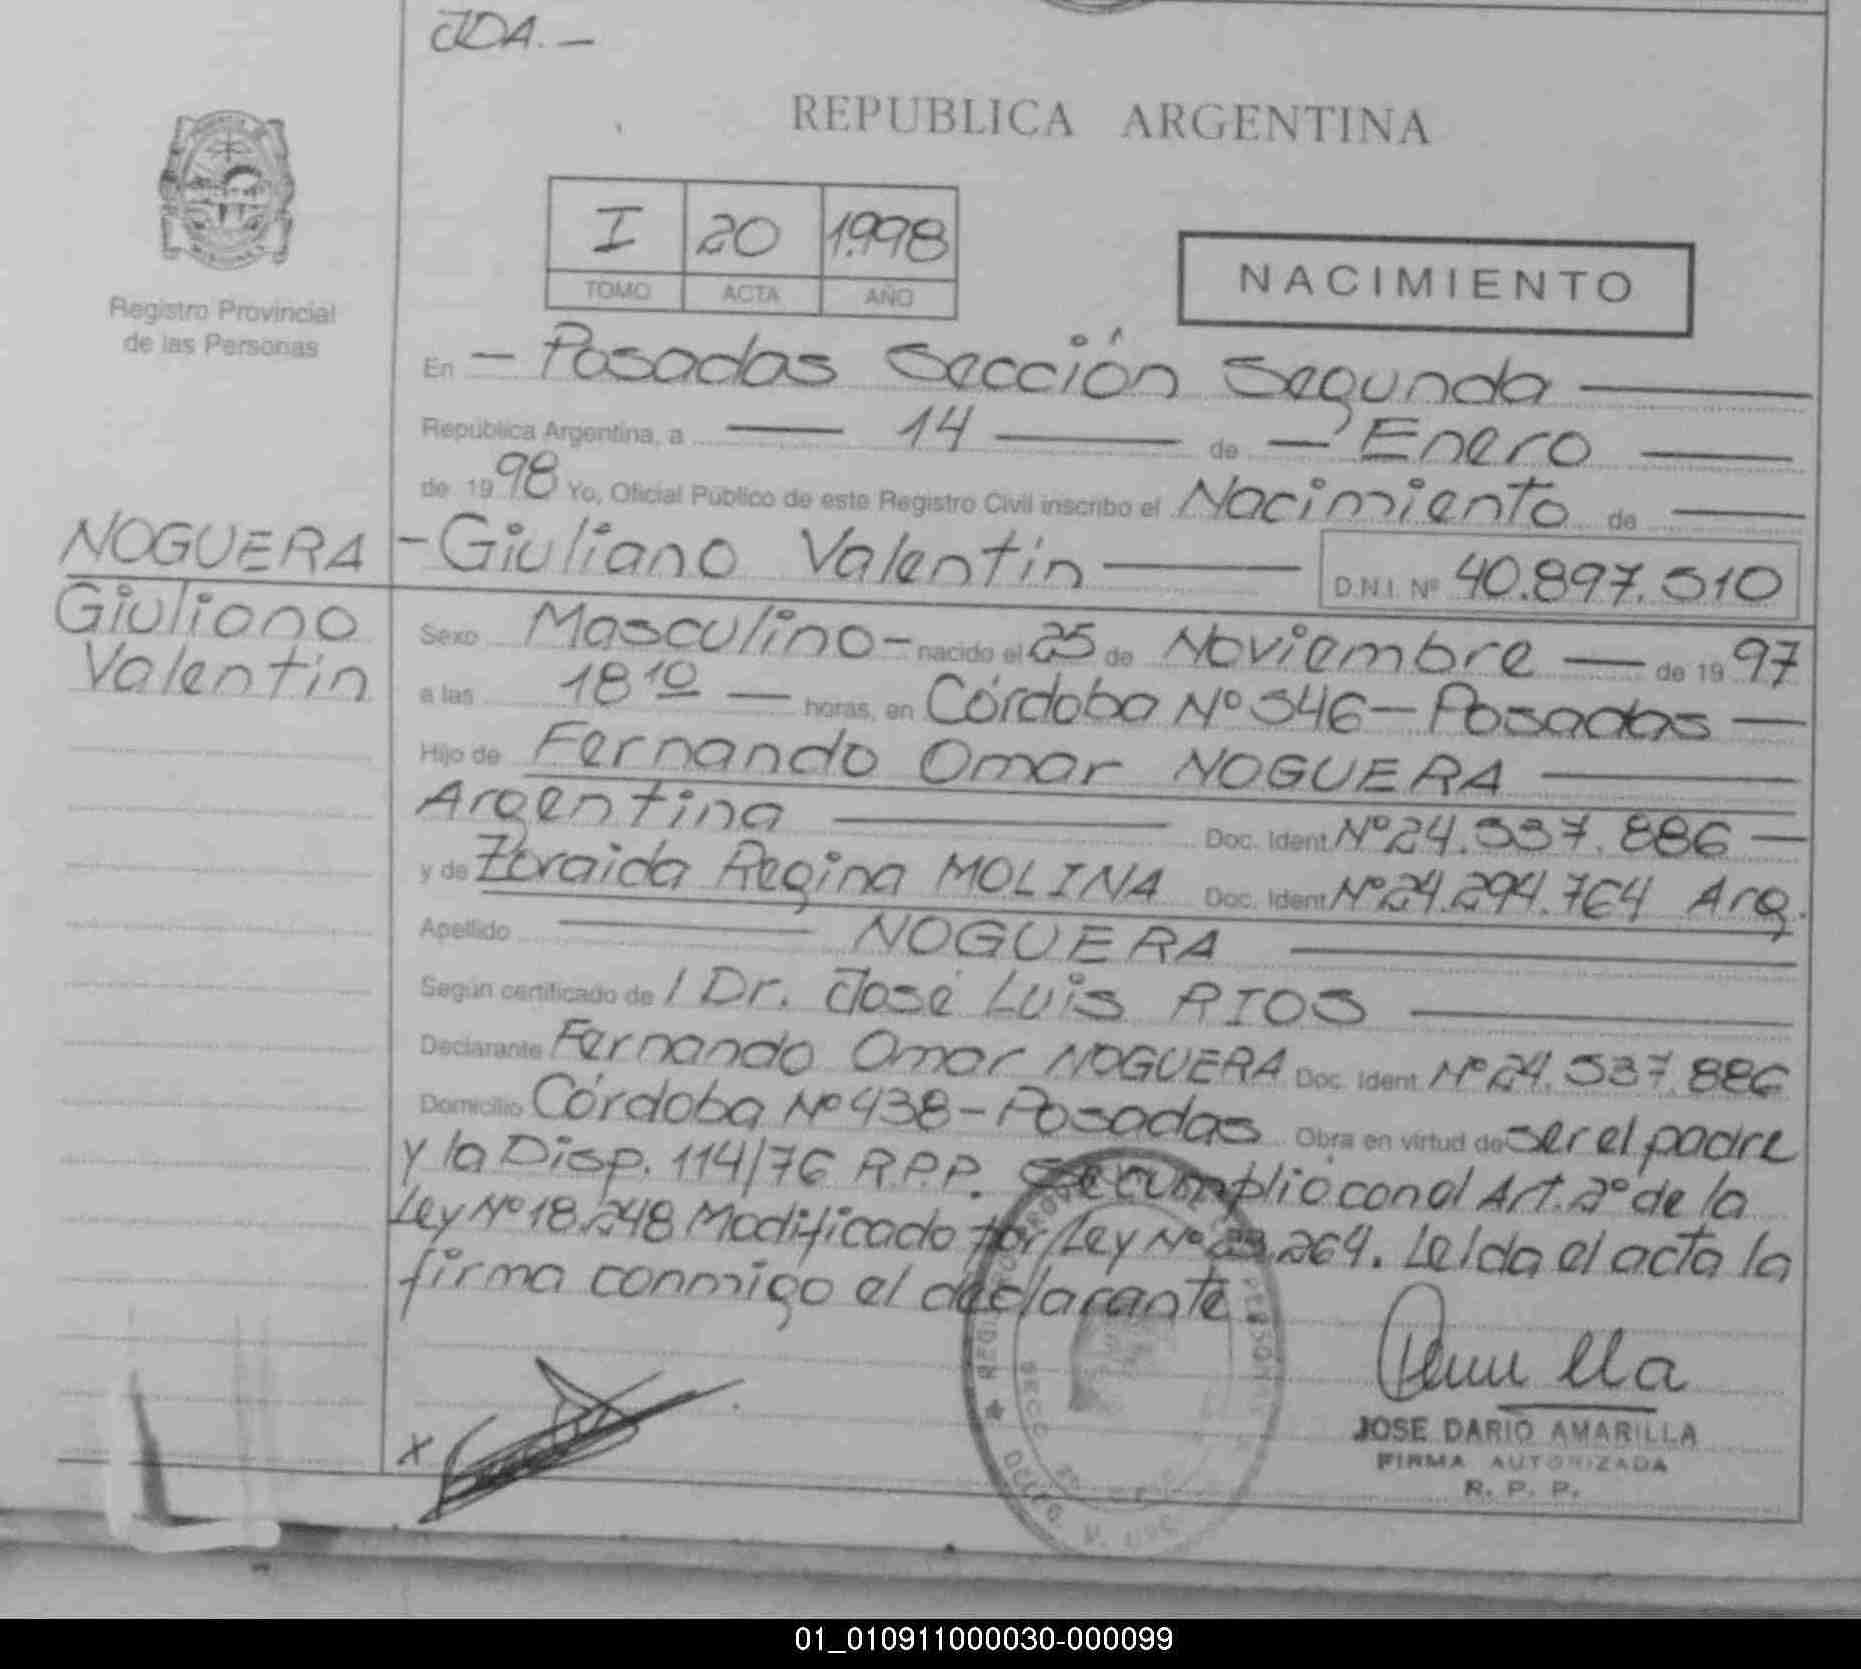 JDA.—
REPUBLICA ARGENTINA
I 20 1998
TOMO ACTA AÑO
NACIMIENTO
Registro Provincial
de las Personas
En — Posadas Sección Segunda —
República Argentina, a — 14 — de — Enero —
de 1998 Yo, Oficial Público de este Registro Civil inscribo el Nacimiento de —
NOGUERA
Giuliano
Valentin
- Giuliano Valentin — D.N.I. Nº 40.897.510
Sexo Masculino - nacido el 25 de Noviembre — de 1997
a las 18 10 — horas, en Córdoba Nº 546 - Posadas —
Hijo de Fernando Omar NOGUERA —
Argentina — Doc. Ident. Nº 24.537.886 —
y de Zoraida Regina MOLINA Doc. Ident. Nº 24.294.764 Arg.
Apellido — NOGUERA —
Según certificado de / Dr. José Luis RIOS —
Declarante Fernando Omar NOGUERA Doc. Ident. Nº 24.537.886
Domicilio Córdoba Nº 438 - Posadas Obra en virtud de ser el padre
y la Disp. 114/76 R.P.P. Se cumplió con el Art. 2º de la
Ley Nº 18.248 Modificado por Ley Nº 23.264. Leída el acta la
firma conmigo el declarante.
x
JOSE DARIO AMARILLA
FIRMA AUTORIZADA
R. P. P.
01_010911000030-000099